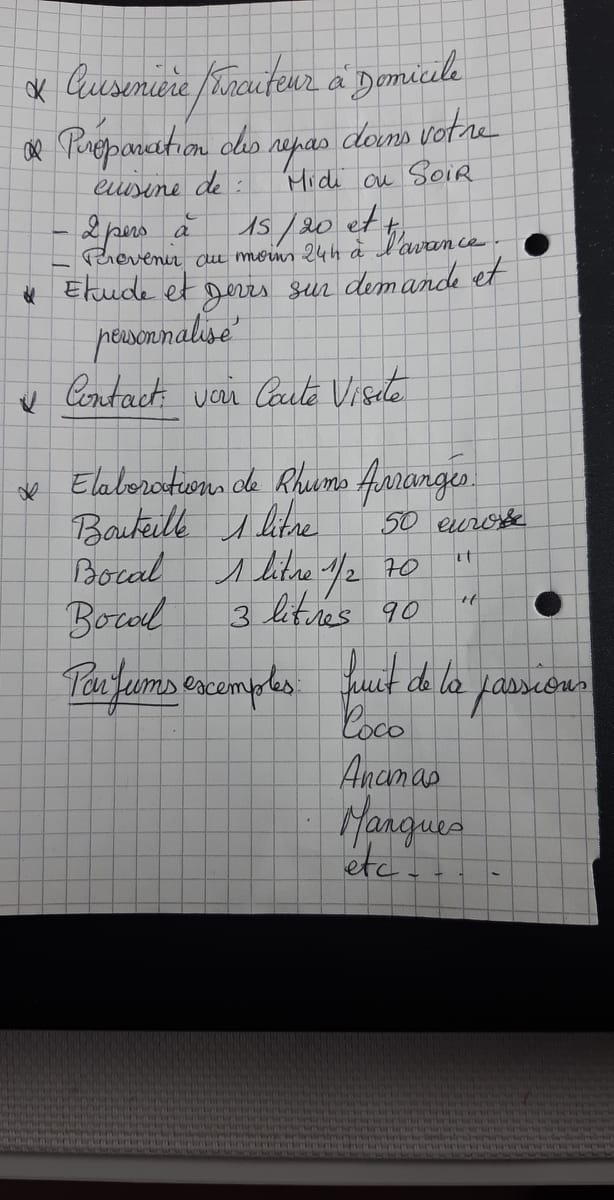 * Cuisenière/Traiteur à Domicile
* Préparation des repas dans votre
cuisine de : Midi ou SOIR
- 2 pers à 15/20 et +
- Prévenir au moins 24h à l'avance.
* Etude et Devis sur demande et
personnalisé
* Contact: voir Carte Visite
* Elaborations de Rhums Arrangés.
Bouteille 1 litre 50 euros
Bocal 1 litre 1/2 70 "
Bocal 3 litres 90 "
Parfums exemples: fruit de la passions
Coco
Ananas
Mangues
etc - . . -